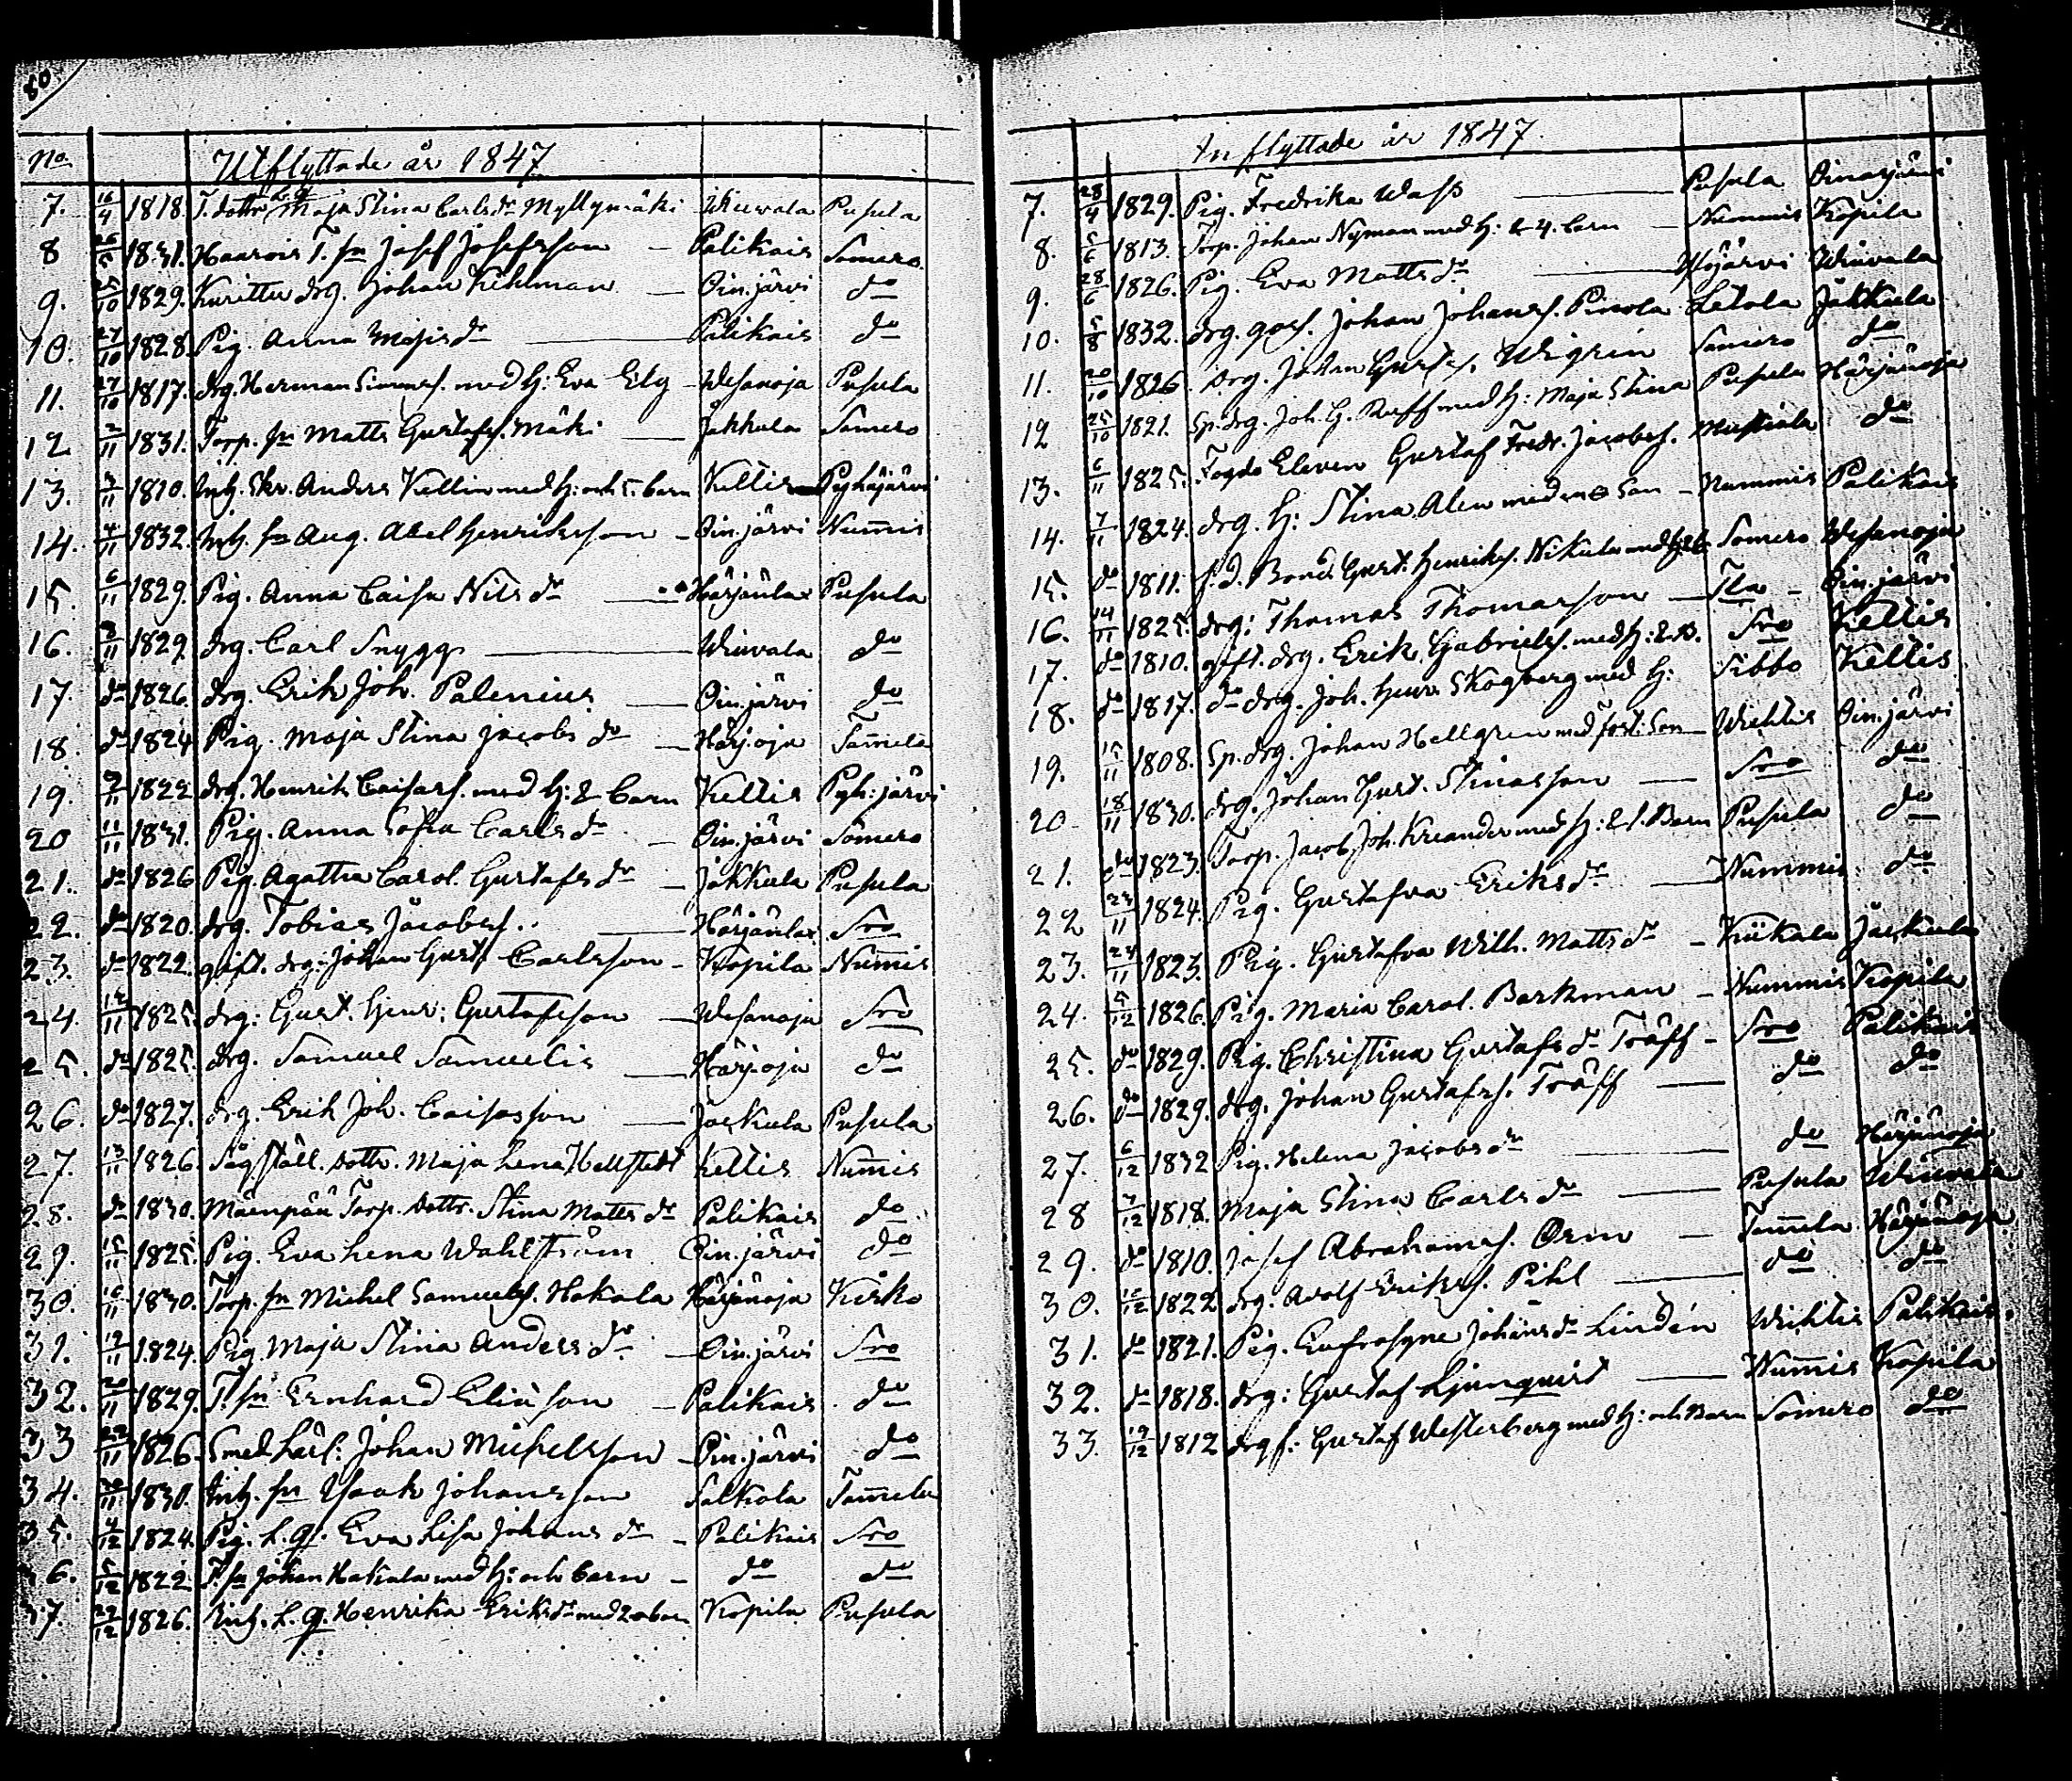 80
No Utflyttade år 1847
7. 16/4 1818. T. dottr L. q. Maja Stina Carlsdr Myllymäki Wiuvala Pusula
8 26/5 1831. Haarois T. sn Josef Josefsson — Palikais Somero
9. 25/10 1829. Kuritter drg. Johan Kihlman — Oin.järvi do
10. 27/10 1828. Pig. Anna Majisdr — Palikais do
11. 27/10 1817. drg. Herman Simons. med H: Eva Elg — Wesanoja Pusula
12 2/11 1831. Torp. sn Matts Gustafs. Mäki — Jakkula Somero
13. 3/11 1810. Inh. Skr. Anders Kellin med H: och 5. barn Kellis Pyhäjärvi
14. 4/11 1832. Inh. sn Aug. Abel Henriksson — Oin.järvi Num̄is
15. 6/11 1829. Pig. Anna Caisa Nilsdr — Härjänlax Pusula
16. 8/11 1829. drg. Carl Snygg — Wiuvala do
17. do 1826. drg. Erik Joh. Palenius — Oin.järvi do
18. do 1824 Pig. Maja Stina Jacobsdr — Härj.oja Tam̄ela
19. 9/11 1822 drg. Henrik Caisas. med H: & barn Kellis Pyh:järvi
20 11/11 1831. Pig. Anna Sofia Carlsdr — Oin.järvi Somero
21. do 1826 Pig. Agatha Carol. Gustafsdr — Jakkula Pusula
22. do 1820. drg. Tobias Jacobss. — Härjänlax Sro
23. do 1822. gift. drg. Johan Gust. Carlsson — Kopila Num̄is
24. 12/11 1825. drg: Gust. Henr: Gustafsson — Wesanoja Sro
25. do 1825. drg. Samuel Samuelis — Härj.oja do
26. do 1827. drg. Erik Joh. Caisasson — Jackula Pusula
27. 13/11 1826. Sågställ. dottr. Maja Lena Hellstedt Kellis Num̄is
28. do 1830. Mäenpää Torp. dottr. Stina Mattsdr Palikais do
29. 15/11 1825. Pig. Eva Lena Wahlström Oin.järvi do
30. 16/11 1830. Torp. sn Michel Samuels. Hakala Härjänoja Kirko
31. 19/11 1824. Pig. Maja Stina Andersdr — Oin.järvi Sro
32. 20/11 1829. T. sn Ernhard Eliasson — Palikais do
33 22/11 1826. Smed Lärl: Johan Michelsson — Oin.järvi do
34. 30/11 1830. Inh. sn Isaak Johansson Salkola Tam̄ela
35. 4/12 1824. Pig. L. q. Eva Lisa Johansdr — Palikais Sro
36. 5/12 1822 T. sn Johan Hakala med H: och barn — do do
37. 29/12 1826. Inh. L. q. Henrika Eriksdr med 2 barn Kopila Pusula
Inflyttade år 1847
7. 28/4 1829. Pig. Fredrika Wass — Pusula Oinasjärvi
8. 5/6 1813. Torp. Johan Nyman med H: & 4. barn — Nummis Kopila
9. 28/6 1826. Pig. Eva Mattsdr — Yöjärvi Wiuvala
10. 5/8 1832. drg. goss. Johan Johanss. Pirola Letala Jakkula
11. 20/10 1826. drg. Johan Gustafs. Wigrén Somero do
12 25/10 1821. Sp. drg. Joh. G. Ruff med H: Maja Stina Pusula Härjänoja
13. 6/11 1825. Fogde Eleven Gustaf Fredr. Jacobss. Mustiala do
14. 7/11 1824. drg. H: Stina Alen med en Son — Nummis Palikais
15. do 1811. f. d. Bond. Gust. Henriks. Nikula med H & b. Somero Wesanoja
16. 14/11 1825. drg: Thomas Thomasson — Tla — Oin.järvi
17. do 1810. gift. drg. Erik Gabriels. med H: & B. Sro Kellis
18. do 1817. do drg. Joh. Henr. Skogberg med H: Sibbo Kellis
19. 15/11 1808. Sp. drg. Johan Hellgren med fost. Son — Wichtis Oin.järvi
20 18/11 1830. drg. Johan Gust. Stinasson — Sro do
21. do 1823. Torp. Jacob Joh. Kreander med H: & 1. Barn Pusula do
22 23/11 1824. Pig. Gustafva Eriksdr — Nummis do
23. 24/11 1823. Pig. Gustafva Wilh. Mattsdr — Kiikala Jackula
24. 5/12 1826. Pig. Maria Carol. Barkman — Nummis Kopila
25. do 1829. Pig. Christina Gustafsdr Träff — Sro Palikais
26. do 1829. drg. Johan Gustafss. Träff — do do
27. 6/12 1832 Pig. Helena Jacobsdr — do Härjänoja
28 7/12 1818. Maja Stina Carlsdr — Pusula Wiuvala
29. do 1810. Josef Abrahams. Orm — Tam̄ela Härjänoja
30. 15/12 1822 drg. Adolf Eriks. Pihl — do do
31. do 1821. Pig. Eufrosyne Johansdr Lindén Wichtis Palikais.
32. do 1818. drg: Gustaf Ljungquist — Num̄is Kopila
33. 19/12 1812 drg f: Gustaf Westerberg med H: och Barn Somero do